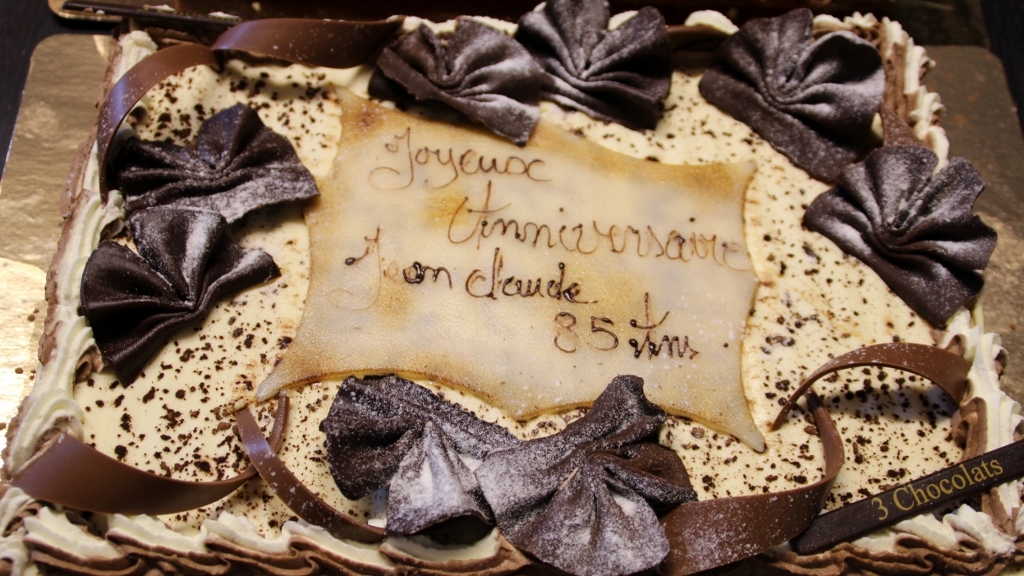 Joyeux
Anniversaire
Jean claude
85 Ans
3 Chocolats